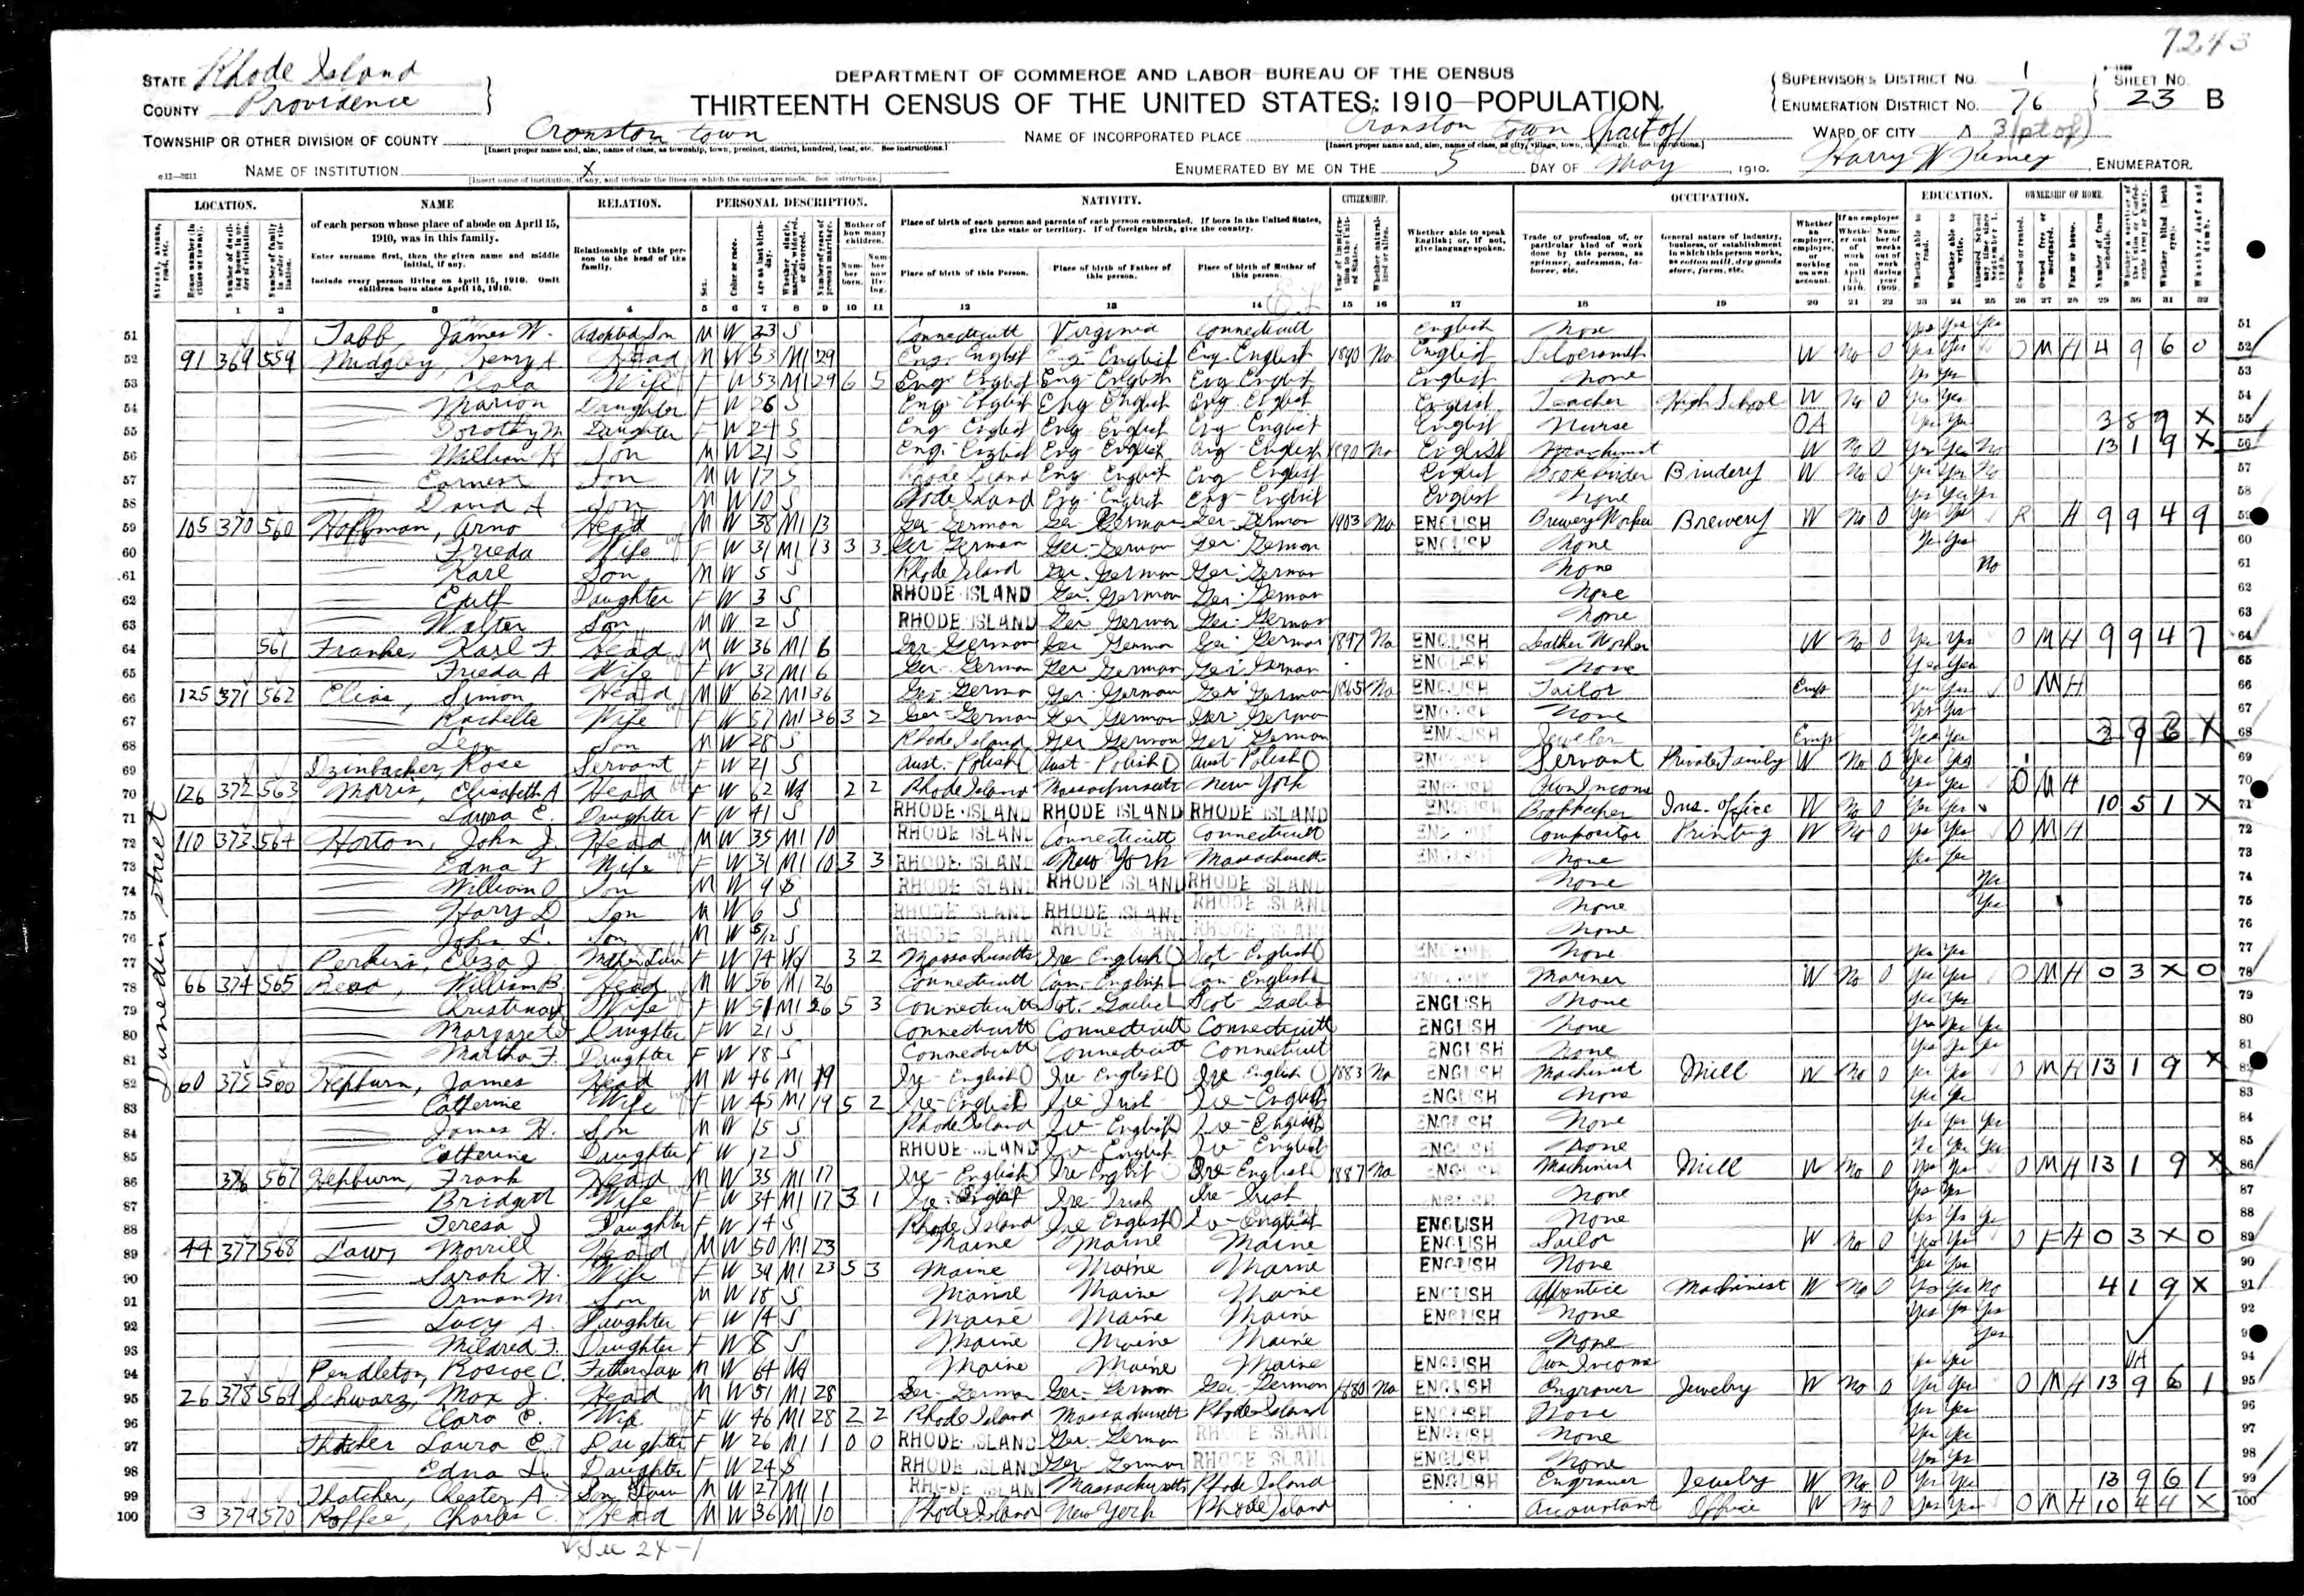 7243
STATE Rhode Island
COUNTY Providence
DEPARTMENT OF COMMERCE AND LABOR—BUREAU OF THE CENSUS
THIRTEENTH CENSUS OF THE UNITED STATES: 1910—POPULATION
SUPERVISOR'S DISTRICT NO. 1
ENUMERATION DISTRICT NO. 76
SHEET NO. 23 B
TOWNSHIP OR OTHER DIVISION OF COUNTY Cranston town
NAME OF INCORPORATED PLACE Cranston town (part of)
WARD OF CITY 3 (pt of)
NAME OF INSTITUTION X
ENUMERATED BY ME ON THE 5 DAY OF May, 1910.
Harry, ENUMERATOR.
LOCATION. NAME RELATION. PERSONAL DESCRIPTION. NATIVITY. CITIZENSHIP. OCCUPATION. EDUCATION. OWNERSHIP OF HOME.
of each person whose place of abode on April 15, 1910, was in this family.
Enter surname first, then the given name and middle initial, if any.
Include every person living on April 15, 1910. Omit children born since April 15, 1910.
Relationship of this person to the head of the family.
Place of birth of each person and parents of each person enumerated. If born in the United States, give the state or territory. If of foreign birth, give the country.
Place of birth of this Person. Place of birth of Father of this person. Place of birth of Mother of this person.
Whether able to speak English; or, if not, give language spoken.
Trade or profession of, or particular kind of work done by this person, as spinner, salesman, laborer, etc.
General nature of industry, business, or establishment in which this person works, as cotton mill, dry goods store, farm, etc.
1 2 3 4 5 6 7 8 9 10 11 12 13 14 15 16 17 18 19 20 21 22 23 24 25 26 27 28 29 30 31 32
Dunedin street
51 Tabb, James W. Adopted Son M W 23 S Connecticutt Virginia Connecticutt English None Yes Yes Yes 51
52 91 369 559 Midgley, Henry A. Head M W 53 M1 29 Eng. English Eng. English Eng. English No English Silversmith W No 0 Yes Yes O M H 4 9 6 0 52
53 Wife F W 53 M1 29 6 5 Eng. English Eng English Eng English English None Yes Yes 53
54 Marion Daughter F W 26 S Eng English Eng English Eng English English Teacher High School W No 0 Yes Yes 54
55 Dorothy M Daughter F W 24 S Eng English Eng English Eng English English Nurse OA Yes Yes 3 8 9 X 55
56 William H Son M W 21 S Eng. English Eng English Eng English 1890 No English Machinist W No 0 Yes Yes No 13 1 9 X 56
57 Earnest Son M W 17 S Rhode Island Eng English Eng English English Bookbinder Bindery W No 0 Yes Yes No 57
58 David A Son M W 10 S Rhode Island Eng English Eng English English None Yes Yes Yes 58
59 105 370 560 Hoffman, Arno Head M W 38 M1 13 Ger German Ger German Ger German 1903 No ENGLISH Brewery Worker Brewery W No 0 Yes Yes R H 9 9 4 9 59
60 Frieda Wife F W 31 M1 13 3 3 Ger German Ger German Ger German ENGLISH None Yes Yes 60
61 Karl Son M W 5 S Rhode Island Ger. German Ger. German None No 61
62 Edith Daughter F W 3 S RHODE ISLAND Ger. German Ger. German None 62
63 Walter Son M W 2 S RHODE ISLAND Ger German Ger German None 63
64 561 Franke, Karl F Head M W 36 M1 6 Ger German Ger German Ger German 1897 No ENGLISH Leather Worker W No 0 Yes Yes O M H 9 9 4 7 64
65 Frieda A Wife F W 37 M1 6 Ger German Ger German Ger German ENGLISH None Yes Yes 65
66 125 371 562 Elias, Simon Head M W 62 M1 36 Ger. German Ger German Ger German 1865 No ENGLISH Tailor Emp Yes Yes O M H 66
67 Rachelle Wife F W 57 M1 36 3 2 Ger German Ger German Ger German ENGLISH None Yes Yes 67
68 Leon Son M W 28 S Rhode Island Ger German Ger German ENGLISH Jeweler Emp Yes Yes 68
69 Dzinbacher, Rose Servant F W 21 S Aust. Polish Aust. Polish Aust Polish ENGLISH Servant Private Family W No 0 Yes Yes 69
70 126 372 563 Morris, Elisabeth A Head F W 62 Wd 2 2 Rhode Island Massachusetts New York Own Income Yes Yes O M H 70
71 Laura E. Daughter F W 41 S RHODE ISLAND RHODE ISLAND RHODE ISLAND ENGLISH Bookkeeper Ins. office W No 0 Yes Yes 10 5 1 X 71
72 110 373 564 Horton, John J. Head M W 35 M1 10 RHODE ISLAND Connecticutt Connecticutt ENGLISH Compositor Printing W No 0 Yes Yes O M H 72
73 Edna F Wife F W 31 M1 10 3 3 RHODE ISLAND New York Massachusetts ENGLISH None Yes Yes 73
74 William O Son M W 9 S RHODE ISLAND RHODE ISLAND RHODE ISLAND None Yes 74
75 Harry D Son M W 6 S RHODE ISLAND RHODE ISLAND RHODE ISLAND None Yes 75
76 John L. Son M W 5/12 S RHODE ISLAND RHODE ISLAND RHODE ISLAND None 76
77 Perkins, Eliza J Mother in Law F W 74 Wd 3 2 Massachusetts Ire English Scot English ENGLISH None Yes Yes 77
78 66 374 565 Read, William B. Head M W 56 M1 26 Connecticutt Can. English Can English Mariner W No 0 Yes Yes O M H 0 3 X 0 78
79 Wife F W 51 M1 26 5 3 Connecticutt Scot. Gaelic Scot Gaelic ENGLISH None Yes Yes 79
80 Margaret Daughter F W 21 S Connecticutt Connecticutt Connecticutt ENGLISH None Yes Yes Yes 80
81 Martha F. Daughter F W 18 S Connecticutt Connecticutt Connecticutt ENGLISH None Yes Yes Yes 81
82 60 375 566 Hepburn, James Head M W 46 M1 19 Ire English Ire English Ire English 1883 No ENGLISH Machinist Mill W No 0 Yes Yes O M H 13 1 9 X 82
83 Catherine Wife F W 45 M1 19 5 2 Ire English Ire Irish Ire English ENGLISH None Yes Yes 83
84 James H. Son M W 15 S Rhode Island Ire English Ire English ENGLISH None Yes Yes Yes 84
85 Catherine Daughter F W 12 S RHODE ISLAND Ire English Ire English ENGLISH None Yes Yes Yes 85
86 376 567 Hepburn, Frank Head M W 35 M1 17 Ire English Ire English Ire English 1887 No ENGLISH Machinist Mill W No 0 Yes Yes O M H 13 1 9 X 86
87 Bridgett Wife F W 34 M1 17 3 1 Ire English Ire Irish Ire Irish ENGLISH None Yes Yes 87
88 Teresa J Daughter F W 14 S Rhode Island Ire English Ire English ENGLISH None Yes Yes Yes 88
89 44 377 568 Law, Morrill Head M W 50 M1 23 Maine Maine Maine ENGLISH Sailor W No 0 Yes Yes O F H 0 3 X 0 89
90 Sarah H. Wife F W 39 M1 23 5 3 Maine Maine Maine ENGLISH None Yes Yes 90
91 Orman M Son M W 18 S Maine Maine Maine ENGLISH Apprentice Machinist W No 0 Yes Yes No 4 1 9 X 91
92 Lucy A. Daughter F W 14 S Maine Maine Maine ENGLISH None Yes Yes Yes 92
93 Mildred F. Daughter F W 8 S Maine Maine Maine None Yes 93
94 Pendleton, Roscoe C. Father in Law M W 64 Wd Maine Maine Maine ENGLISH Own Income Yes Yes UA 94
95 26 378 569 Schwarz, Max J. Head M W 51 M1 28 Ger German Ger German Ger German 1880 No ENGLISH Engraver Jewelry W No 0 Yes Yes O M H 13 9 6 1 95
96 Clara E. Wife F W 46 M1 28 2 2 Rhode Island Massachusetts Rhode Island ENGLISH None Yes Yes 96
97 Thatcher Laura E Daughter F W 26 M1 1 0 0 RHODE ISLAND Ger German RHODE ISLAND ENGLISH None Yes Yes 97
98 Edna L. Daughter F W 24 S RHODE ISLAND Ger German RHODE ISLAND ENGLISH None Yes Yes 98
99 Thatcher, Chester A. Son in Law M W 27 M1 1 RHODE ISLAND Massachusetts Rhode Island ENGLISH Engraver Jewelry W No 0 Yes Yes 13 9 6 1 99
100 3 379 570 Roffee, Charles C. Head M W 36 M1 10 Rhode Island New York Rhode Island Accountant Office W No 0 Yes Yes O M H 10 4 4 X 100
See 24-1